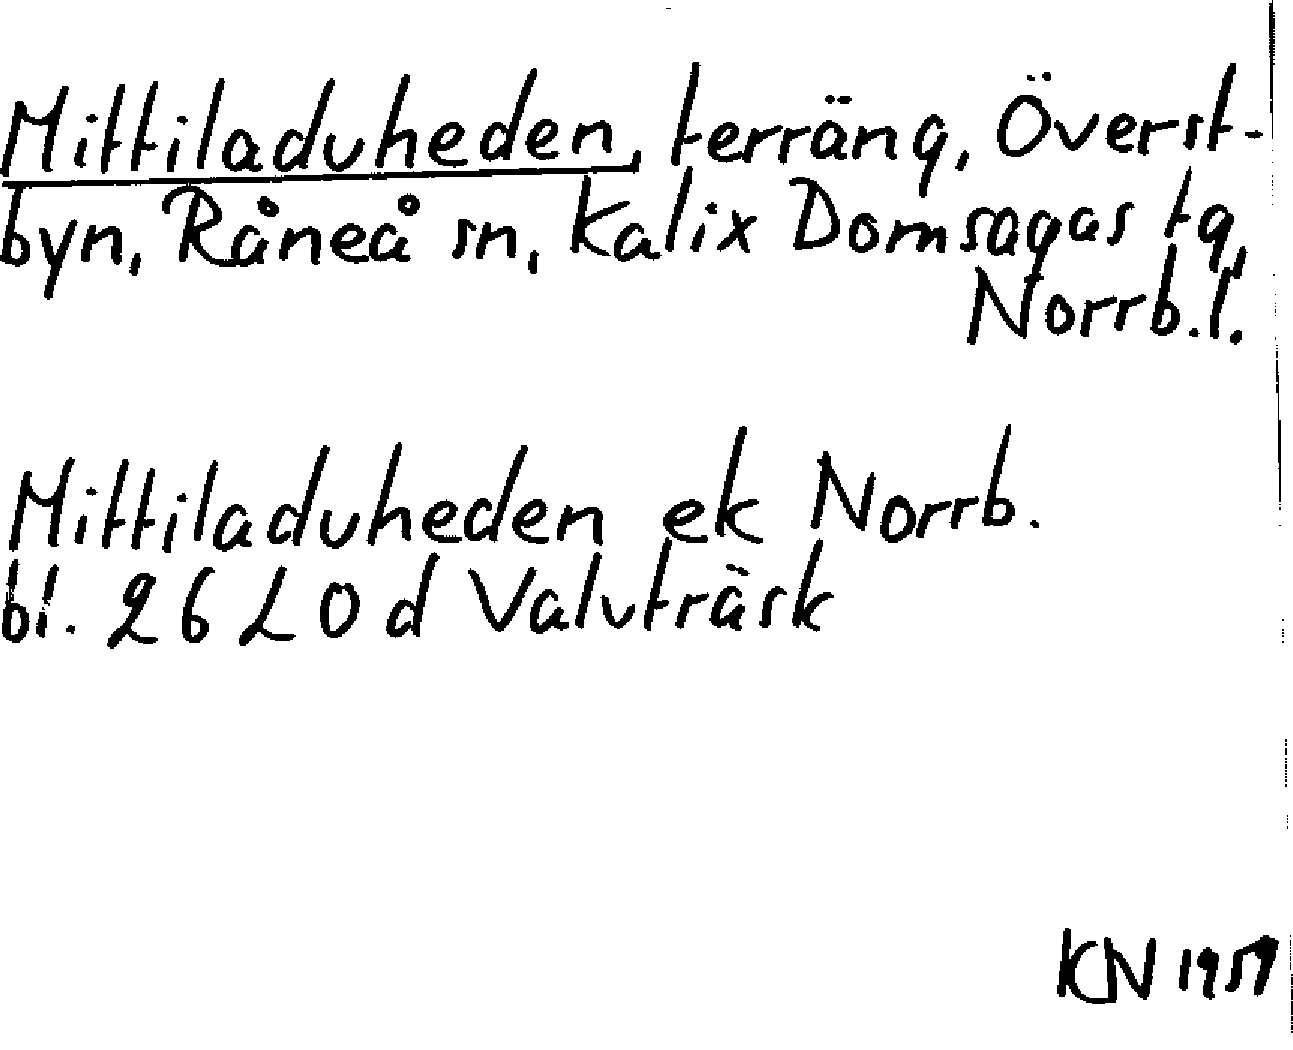 Mittiladuheden, terräng, Överst-
byn, Råneå sn, Kalix Domsagas tg,
Norrb.l.
Mittiladuheden ek Norrb.
bl. 26 L 0 d Valvträsk
KN